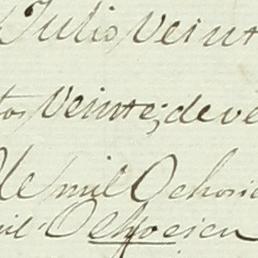 Julio Veint
tos Veinte; de ve
de mil Ochoci
mil Ochocien